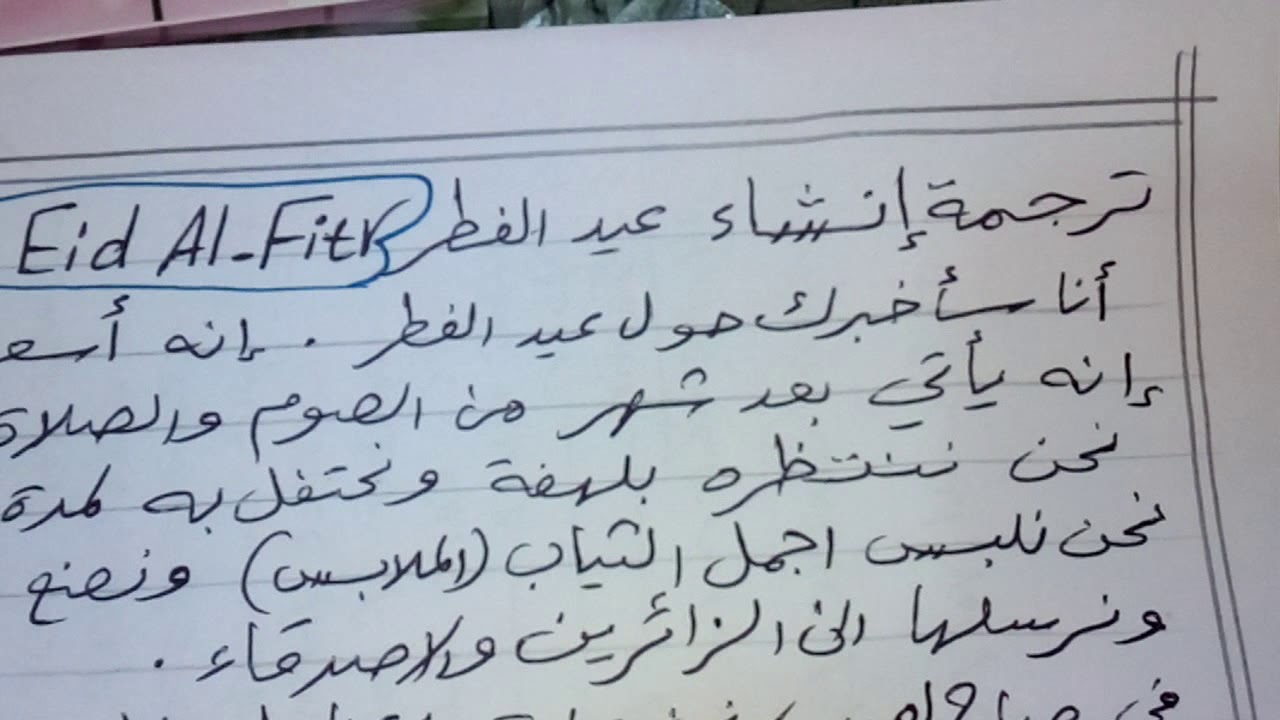 ترجمة إنشاء عيد الفطر Eid Al-Fitr
أنا سأخبرك حول عيد الفطر . إنه
إنه يأتي بعد شهر من الصوم والصلاة
نحن ننتظره بلهفة ونحتفل به لمدة
نحن نلبس اجمل الثياب (الملابس) ونصنع
ونرسلها الى الزائرين والاصدقاء .
في